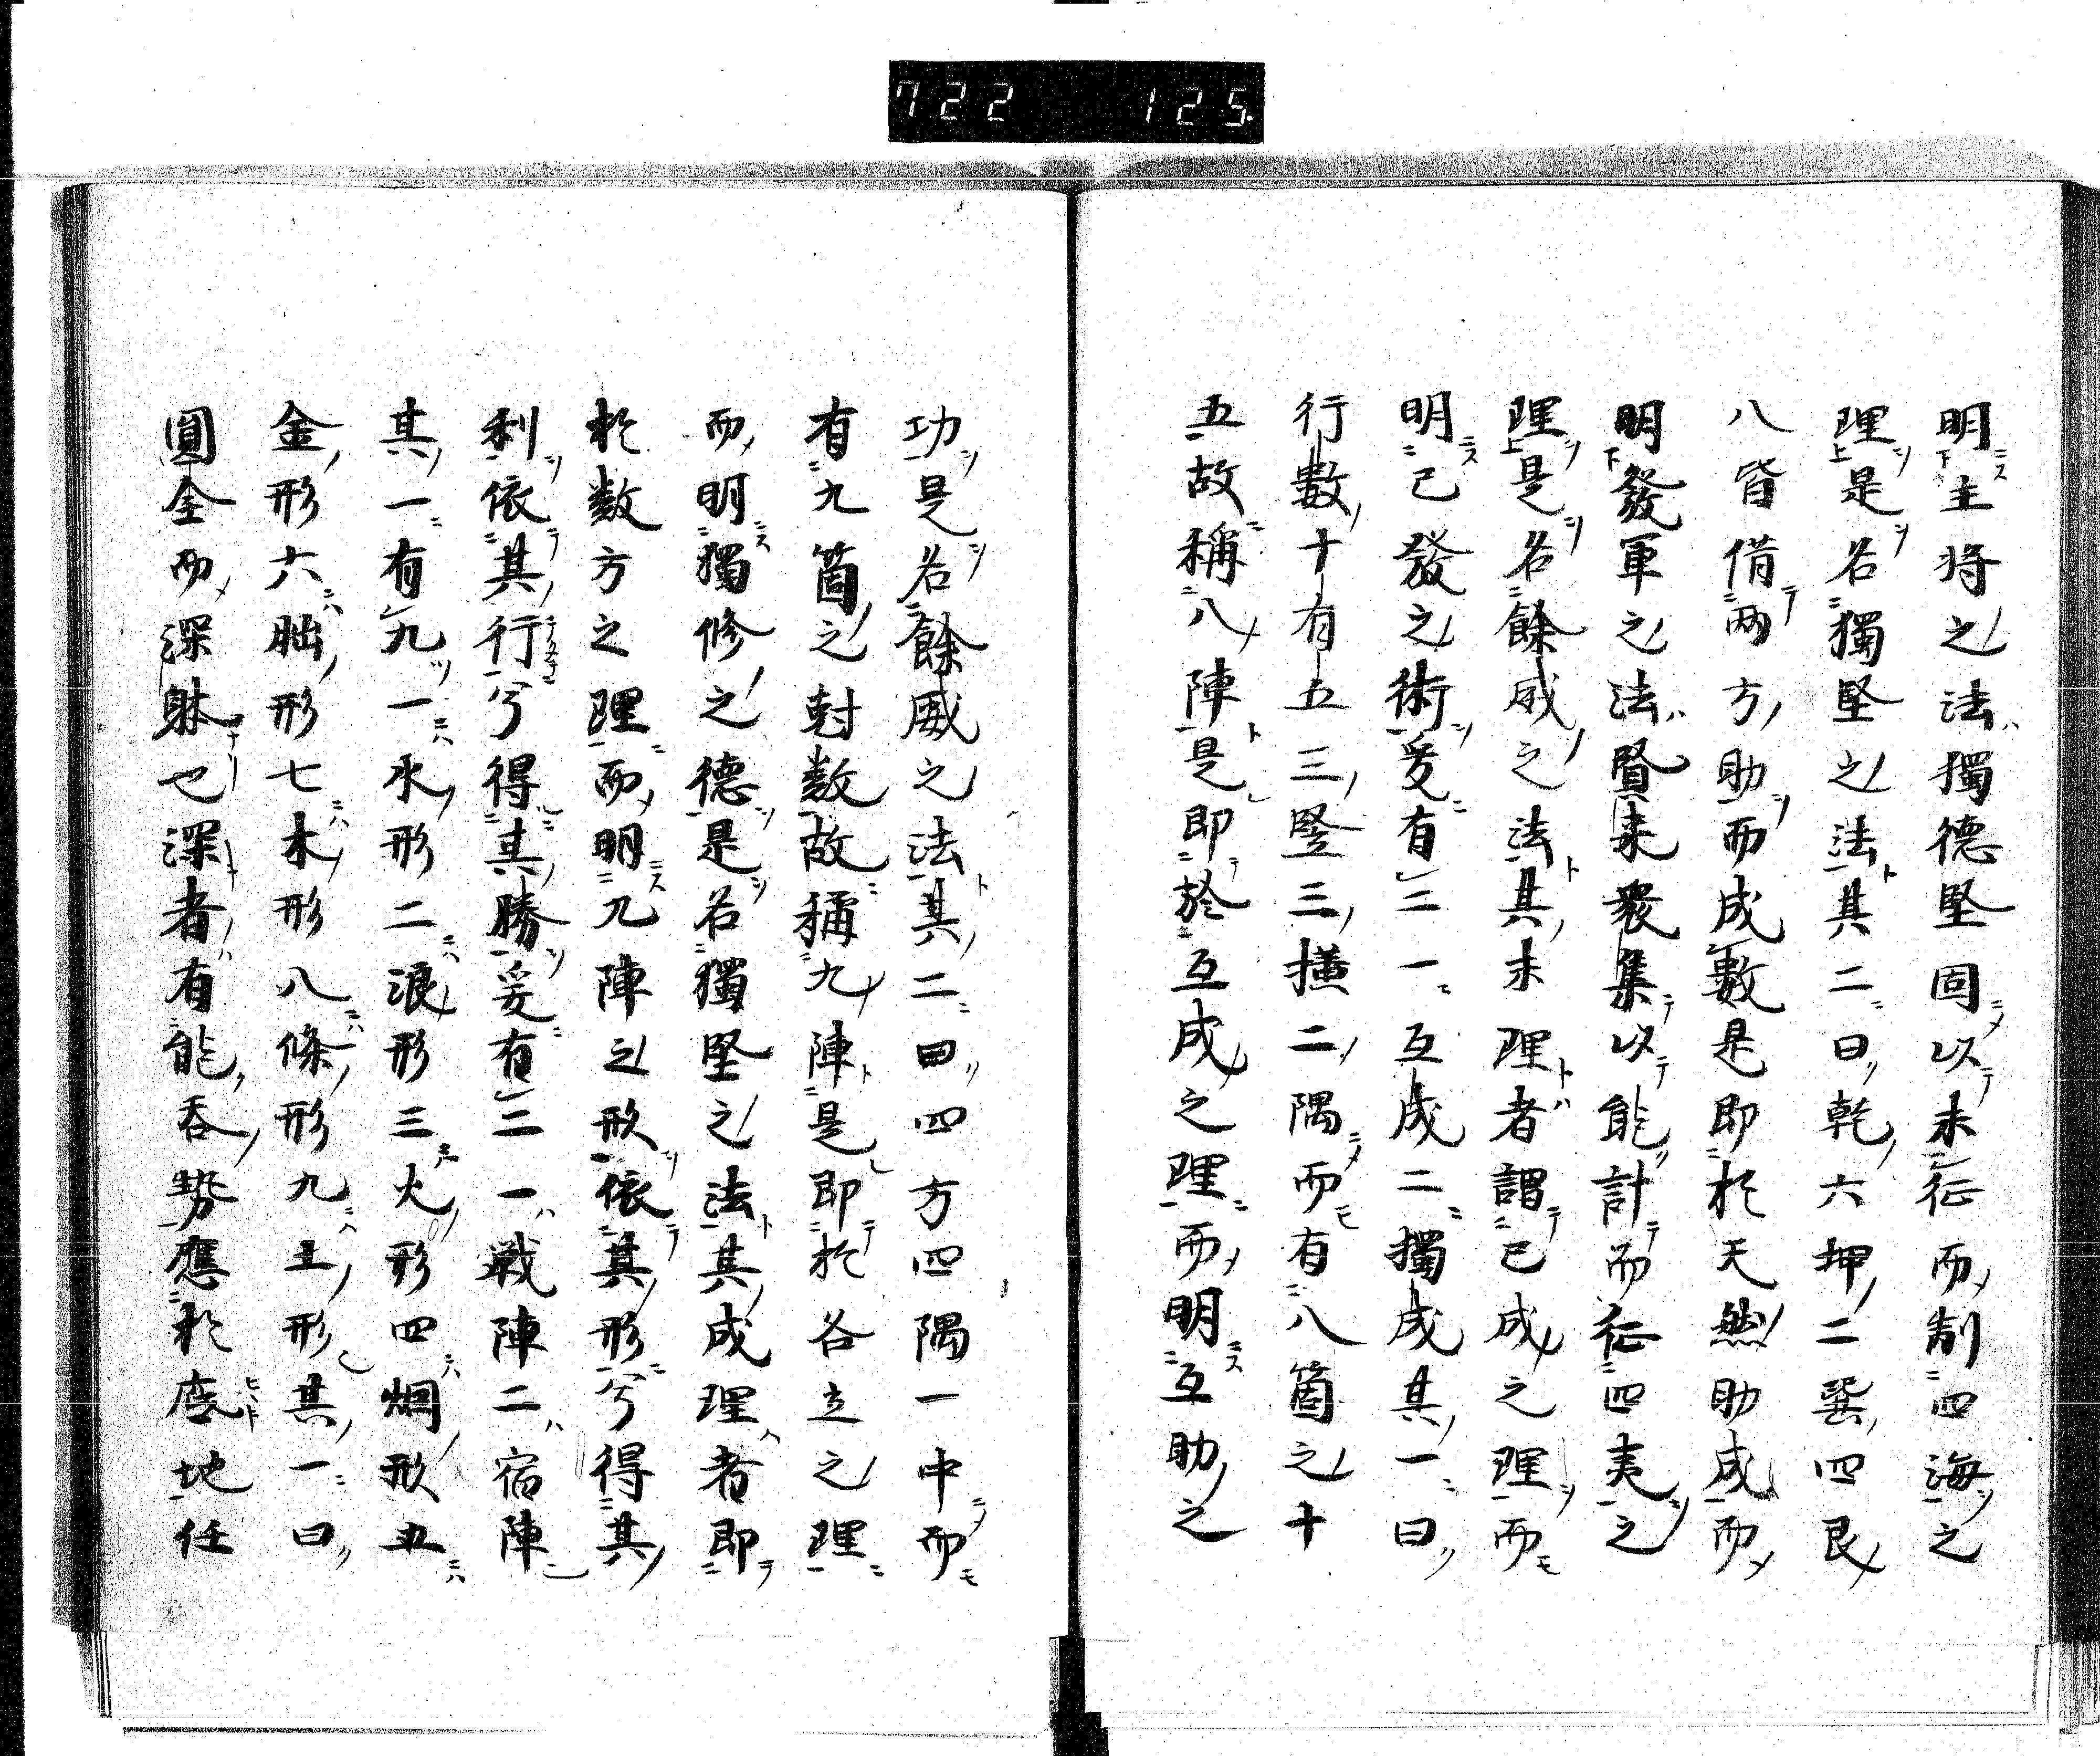 722 125
明主将之法獨徳堅固以未征而制四海之
理是名獨堅之法其二曰乾六坤二巽四艮
八皆借兩方助而成數是即於天然助成而
明發軍之法賢来衆集以能計而征四夷之
理是名餘威之法其未理者謂已成之理而
明已發之術爰有二一互成二獨成其一曰
行數十有五三竪三横二隅而有八箇之十
五故稱八陣是即於互成之理而明互助之
功是名餘威之法其二曰四方四隅一中而
有九箇之封数故稱九陣是即於各立之理
而明獨修之徳是名獨堅之法其成理者即
於数方之理而明九陣之形依其形兮得其
利依其行兮得其勝爰有二一戦陣二宿陣
其一有九一水形二浪形三火形四烟形五
金形六朏形七木形八條形九土形其一曰
圓全而深躰也深者有能呑勢應於底地任